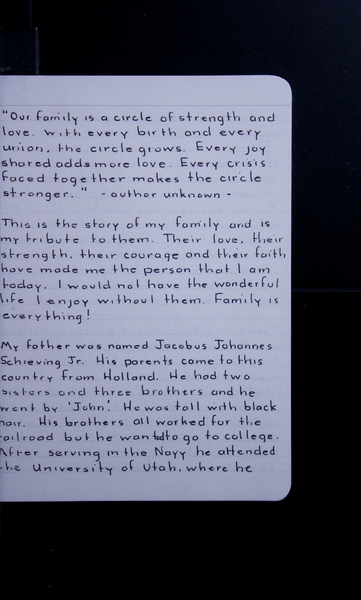 "Our family is a circle of strength and
love. With every birth and every
union, the circle grows. Every joy
shared adds more love. Every crisis
faced together makes the circle
stronger." - author unknown -
This is the story of my family and is
my tribute to them. Their love, their
strength, their courage and their faith
have made me the person that I am
today. I would not have the wonderful
life I enjoy without them. Family is
everything!
My father was named Jacobus Johannes
Schieving Jr. His parents came to this
country from Holland. He had two
sisters and three brothers and he
went by 'John'. He was tall with black
hair. His brothers all worked for the
railroad but he wanted to go to college.
After serving in the Navy he attended
the University of Utah, where he